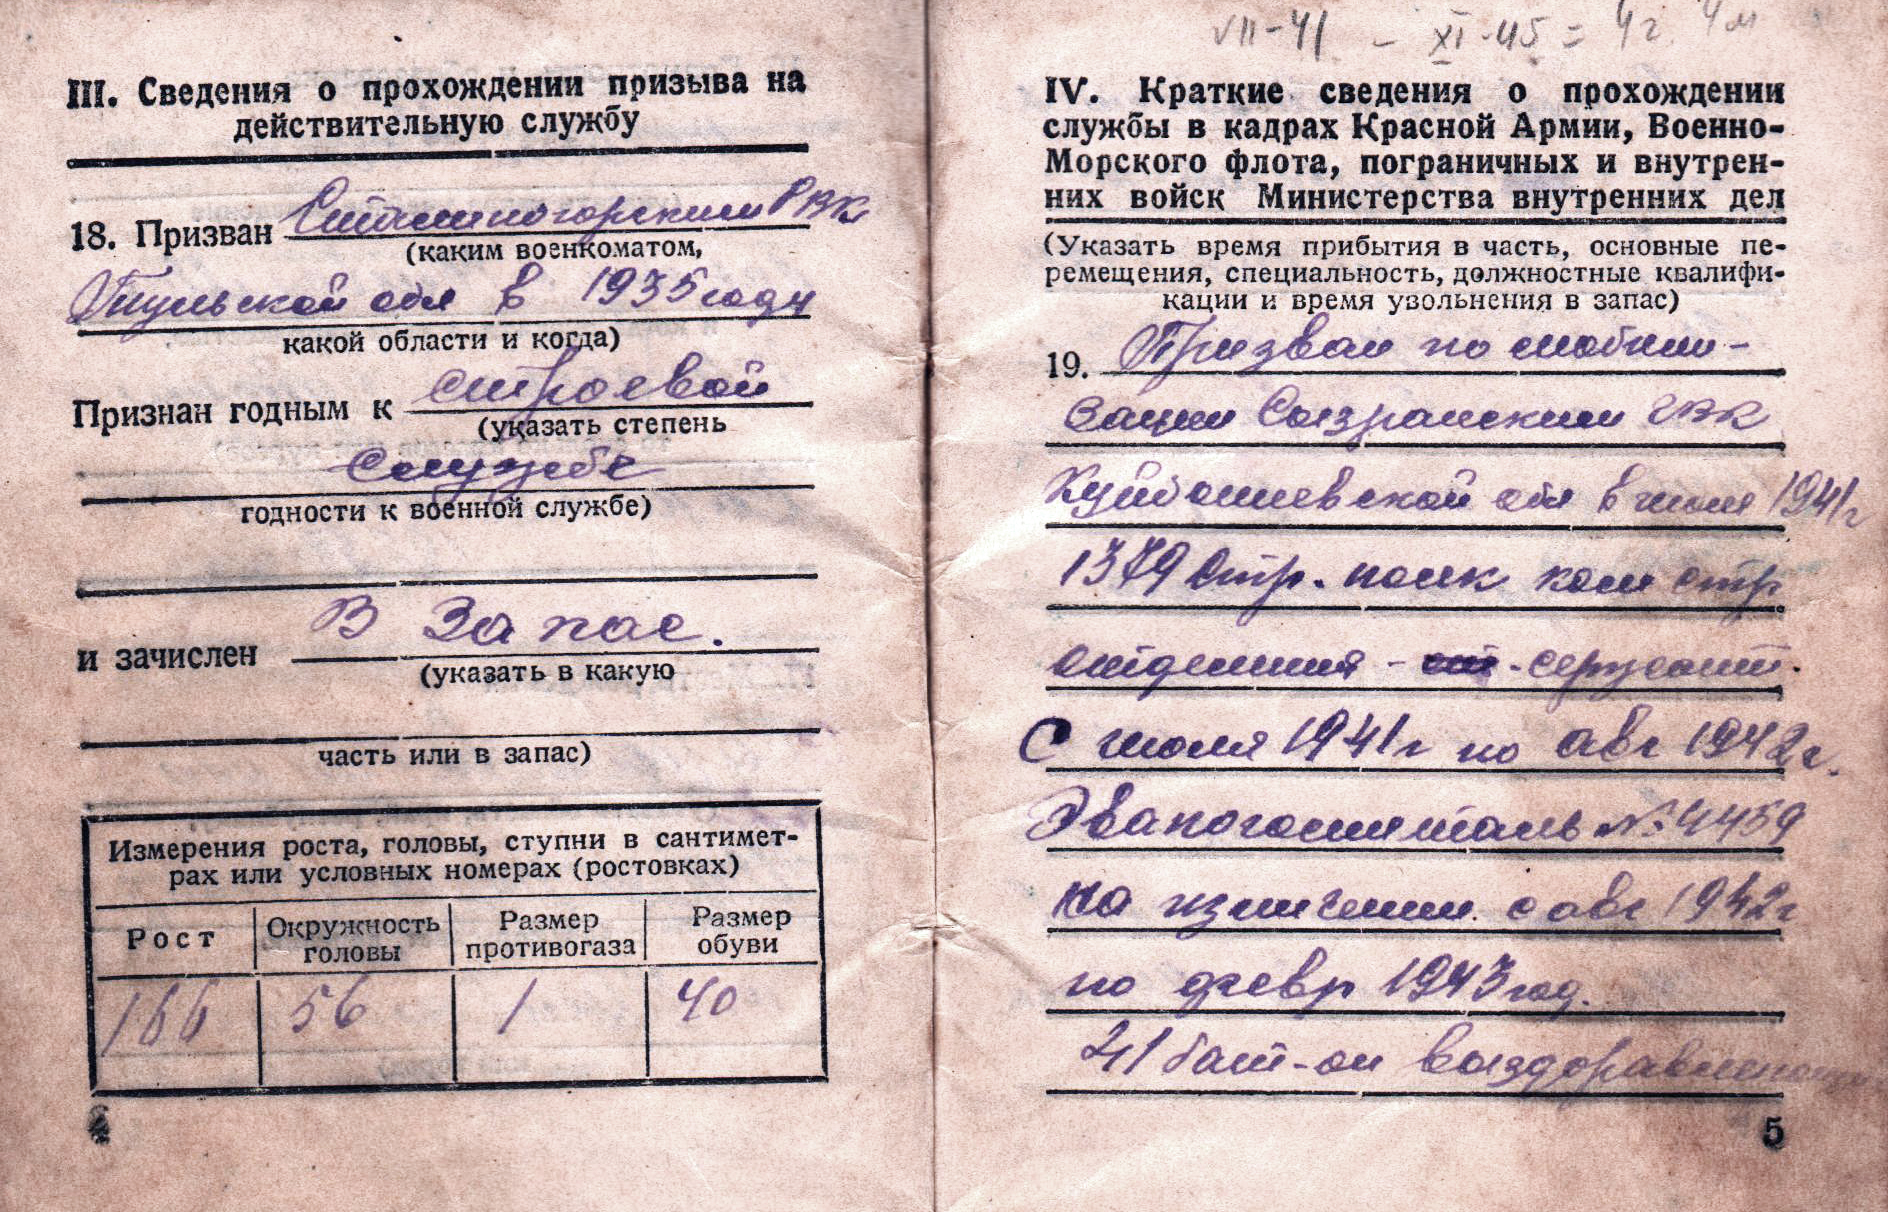 III. Сведения о прохождении призыва на
действительную службу
18. Призван Сталиногорским РВК
(каким военкоматом,
Тульской обл в 1935 году
какой области и когда)
Признан годным к строевой
(указать степень
службе
годности к военной службе)
и зачислен В Запас.
(указать в какую
часть или в запас)
Измерения роста, головы, ступни в сантимет-
рах или условных номерах (ростовках)
Рост Окружность головы Размер противогаза Размер обуви
166 56 1 40
4
VII-41 - XI-45 = 4г. 4м
IV. Краткие сведения о прохождении
службы в кадрах Красной Армии, Военно-
Морского флота, пограничных и внутрен-
них войск Министерства внутренних дел
(Указать время прибытия в часть, основные пе-
ремещения, специальность, должностные квалифи-
кации и время увольнения в запас)
19. Призван по мобили-
зации Сызранским ГВК
Куйбышевской обл в июле 1941г
1379 Стр. полк ком стр
отделения - сержант.
С июля 1941г по авг 1942г.
Эвакогоспиталь № 4459
на излечении с авг 1942г
по февр 1943 год.
41 бат-он выздоравливающих
5